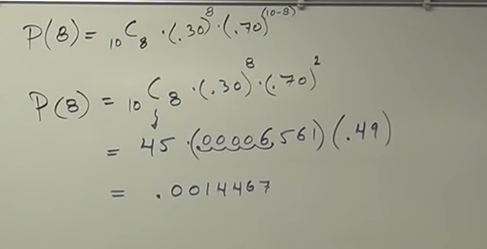 P(8) = ₁₀C₈ · (.30)⁸ · (.70)⁽¹⁰⁻⁸⁾
P(8) = ₁₀C₈ · (.30)⁸ · (.70)²
= 45 · (00006,561) (.49)
= .0014467